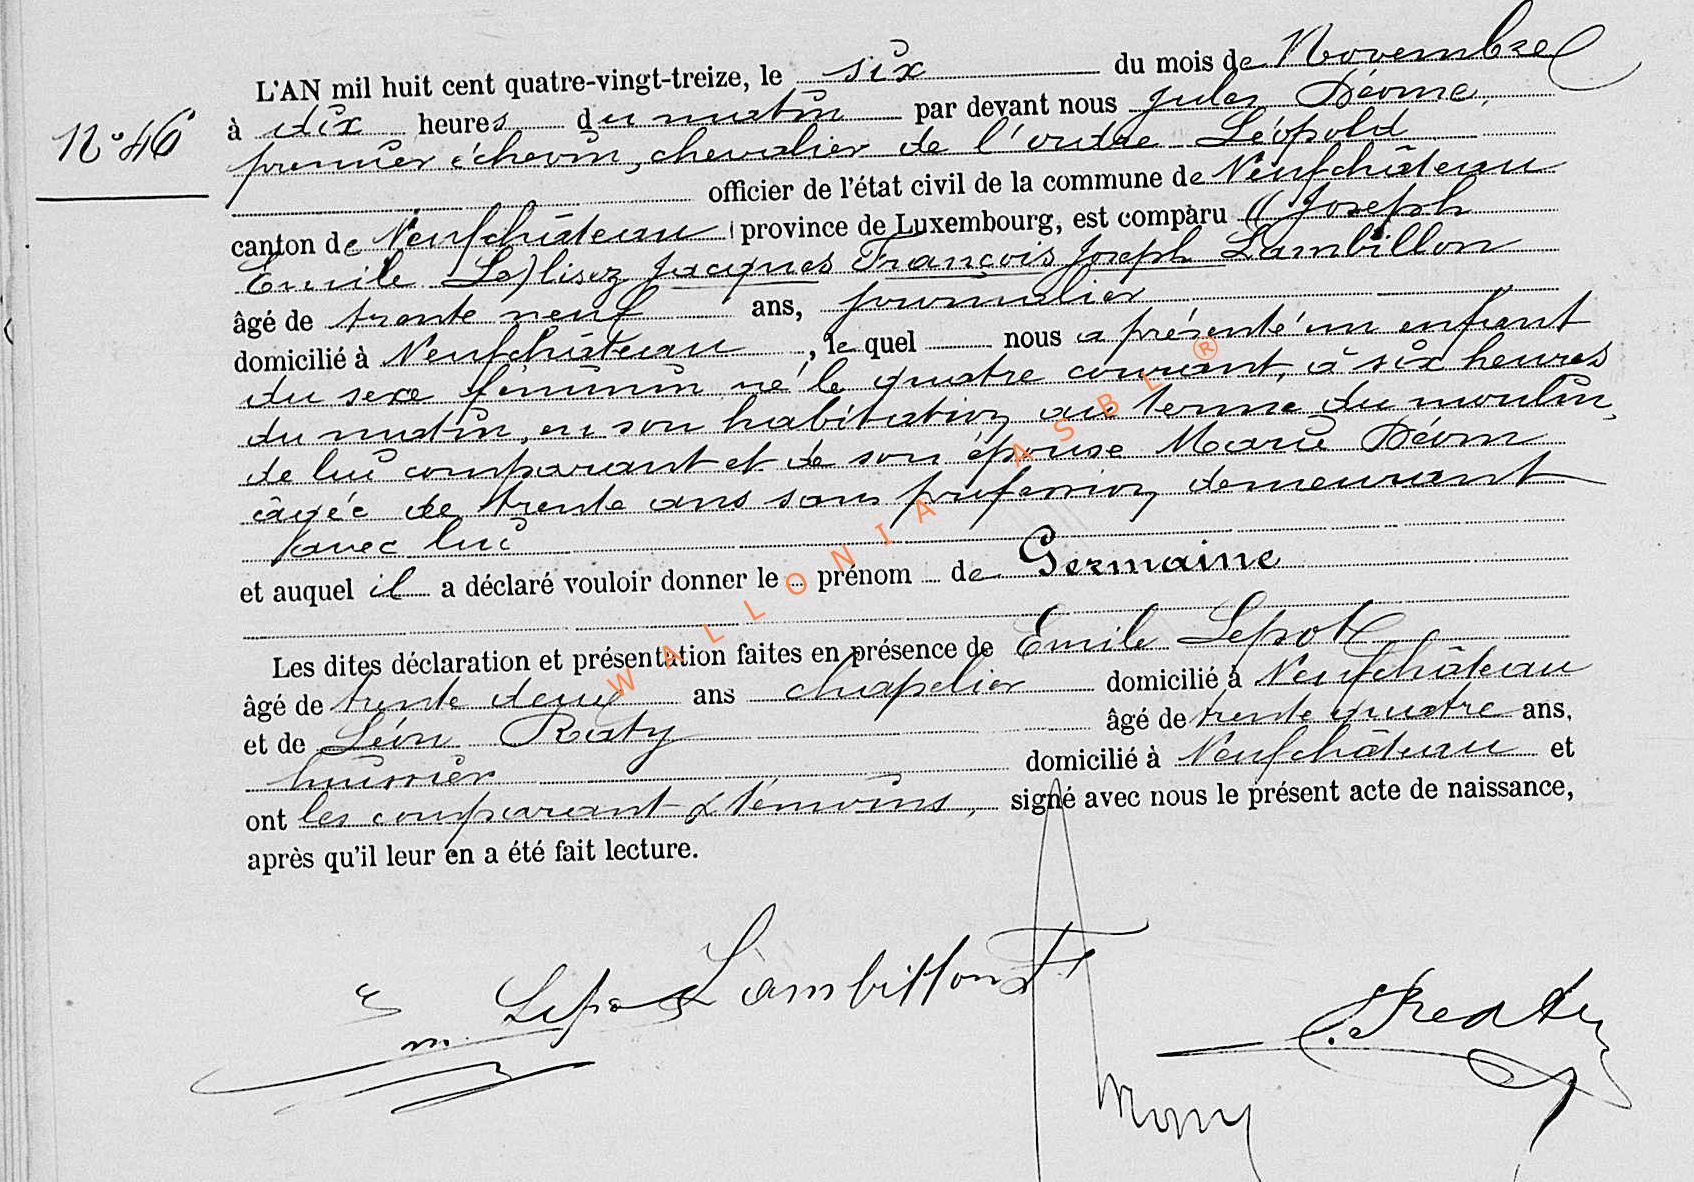 L'AN mil huit cent quatre-vingt-treize, le six du mois de Novembre
N° 46
à dix heures du matin par devant nous Jules Déome,
premier échevin, chevalier de l'ordre Léopold
officier de l'état civil de la commune de Neufchâteau
canton de Neufchâteau province de Luxembourg, est comparu (Joseph
Emile Le) lisez Jacques François Joseph Lambillon
âgé de trente neuf ans, journalier
domicilié à Neufchâteau, le quel nous a présenté un enfant
du sexe féminin né le quatre courant, à six heures
du matin, en son habitation au terme du moulin,
de lui comparant et de son épouse Marie Déom
âgée de trente ans sans profession, demeurant
avec lui
et auquel il a déclaré vouloir donner le prénom de Germaine
Les dites déclaration et présentation faites en présence de Emile Lepot
âgé de trente deux ans chapelier domicilié à Neufchâteau
et de Léon Raty âgé de trente quatre ans,
huissier domicilié à Neufchâteau et
ont les comparant & témoins, signé avec nous le présent acte de naissance,
après qu'il leur en a été fait lecture.
WALLONIA ASBL ®
Em. Lepot Lambillon L. Raty